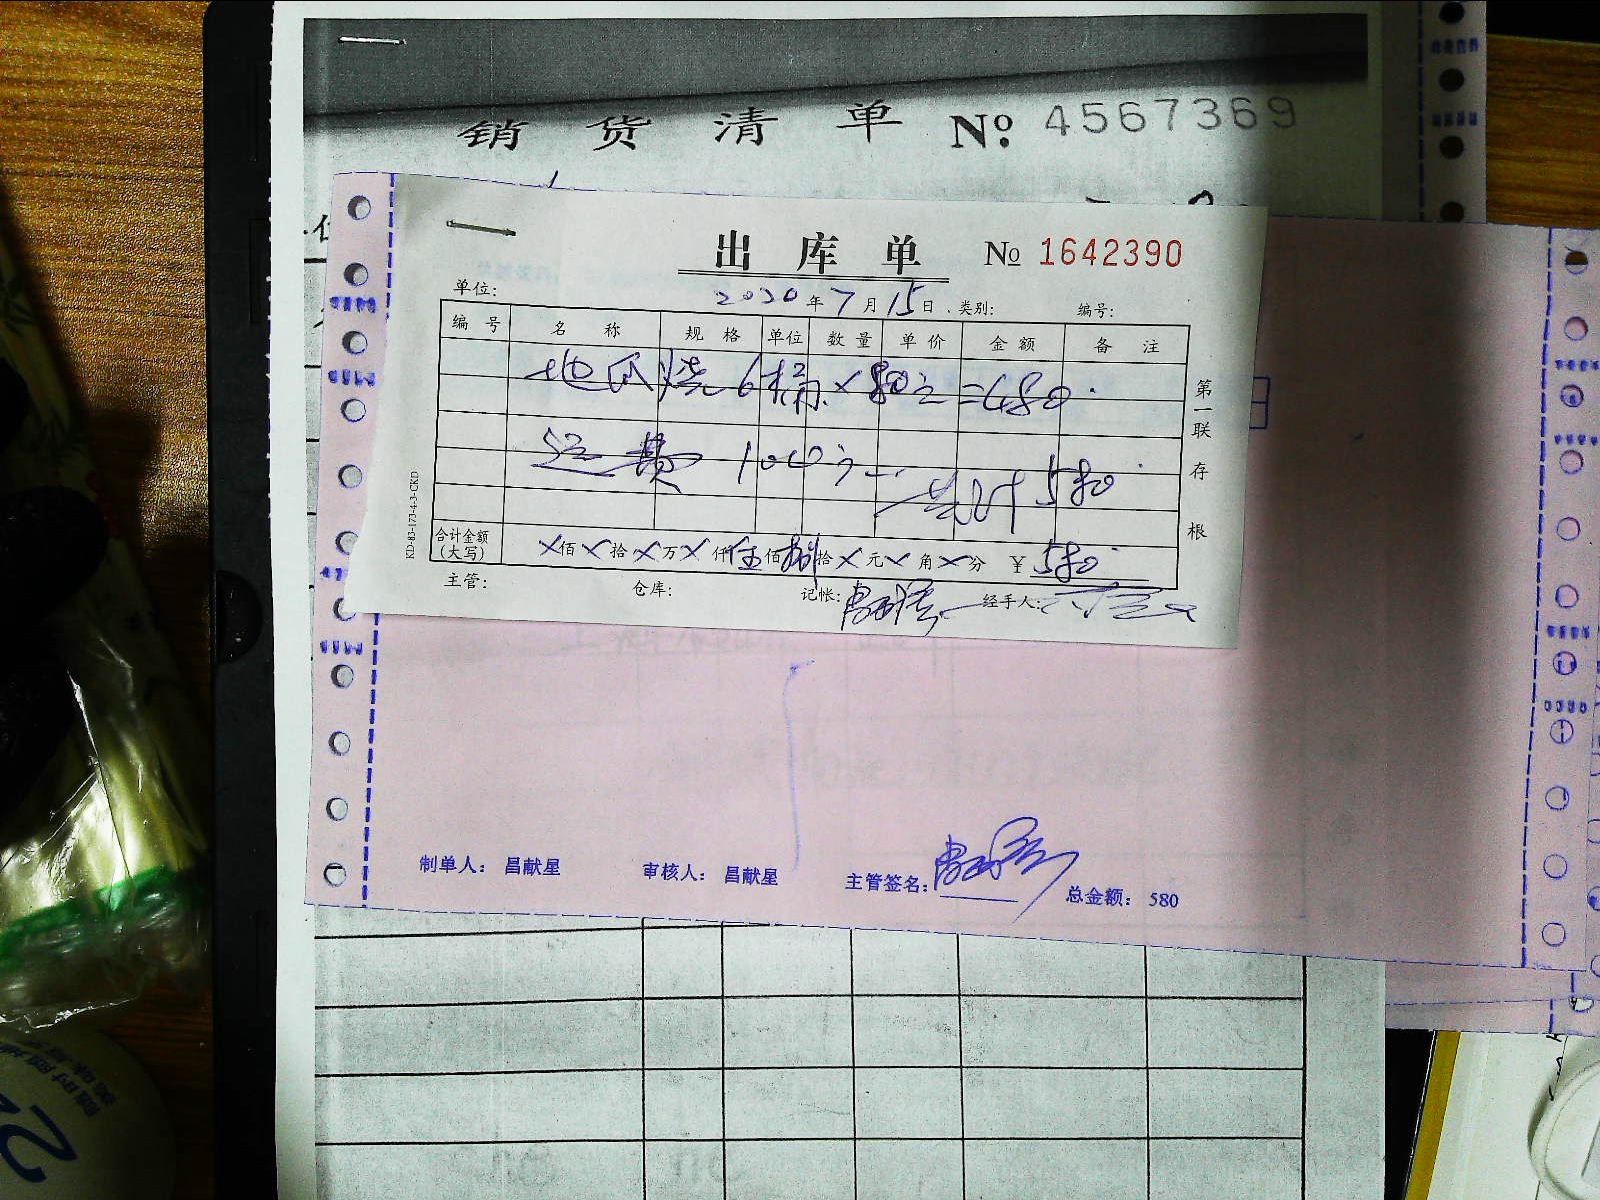 销货清单 № 4567369
出库单 № 1642390
单位: 2020年7月15日 类别: 编号:
编号 名称 规格 单位 数量 单价 金额 备注
地瓜烧6桶×80元=480.
运费 100元 共计580
合计金额(大写) ×佰×拾×万×仟伍佰捌拾×元×角×分 ¥580
主管: 仓库: 记帐: 经手人:
第一联 存根
KD-83-173-4-3-CKD
制单人: 昌献星 审核人: 昌献星 主管签名: 总金额: 580